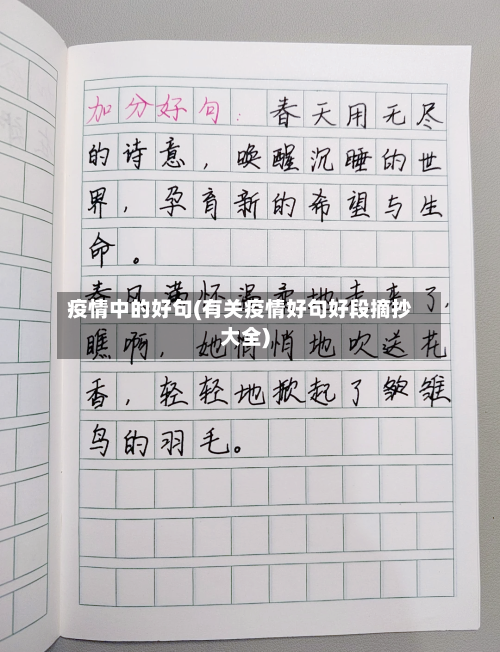 加分好句：春天用无尽
的诗意，唤醒沉睡的世
界，孕育新的希望与生
命。
春风满怀温柔地走来了，
疫情中的好句(有关疫情好句好段摘抄
大全)
瞧啊，她悄悄地吹送花
香，轻轻地掀起了雏
鸟的羽毛。